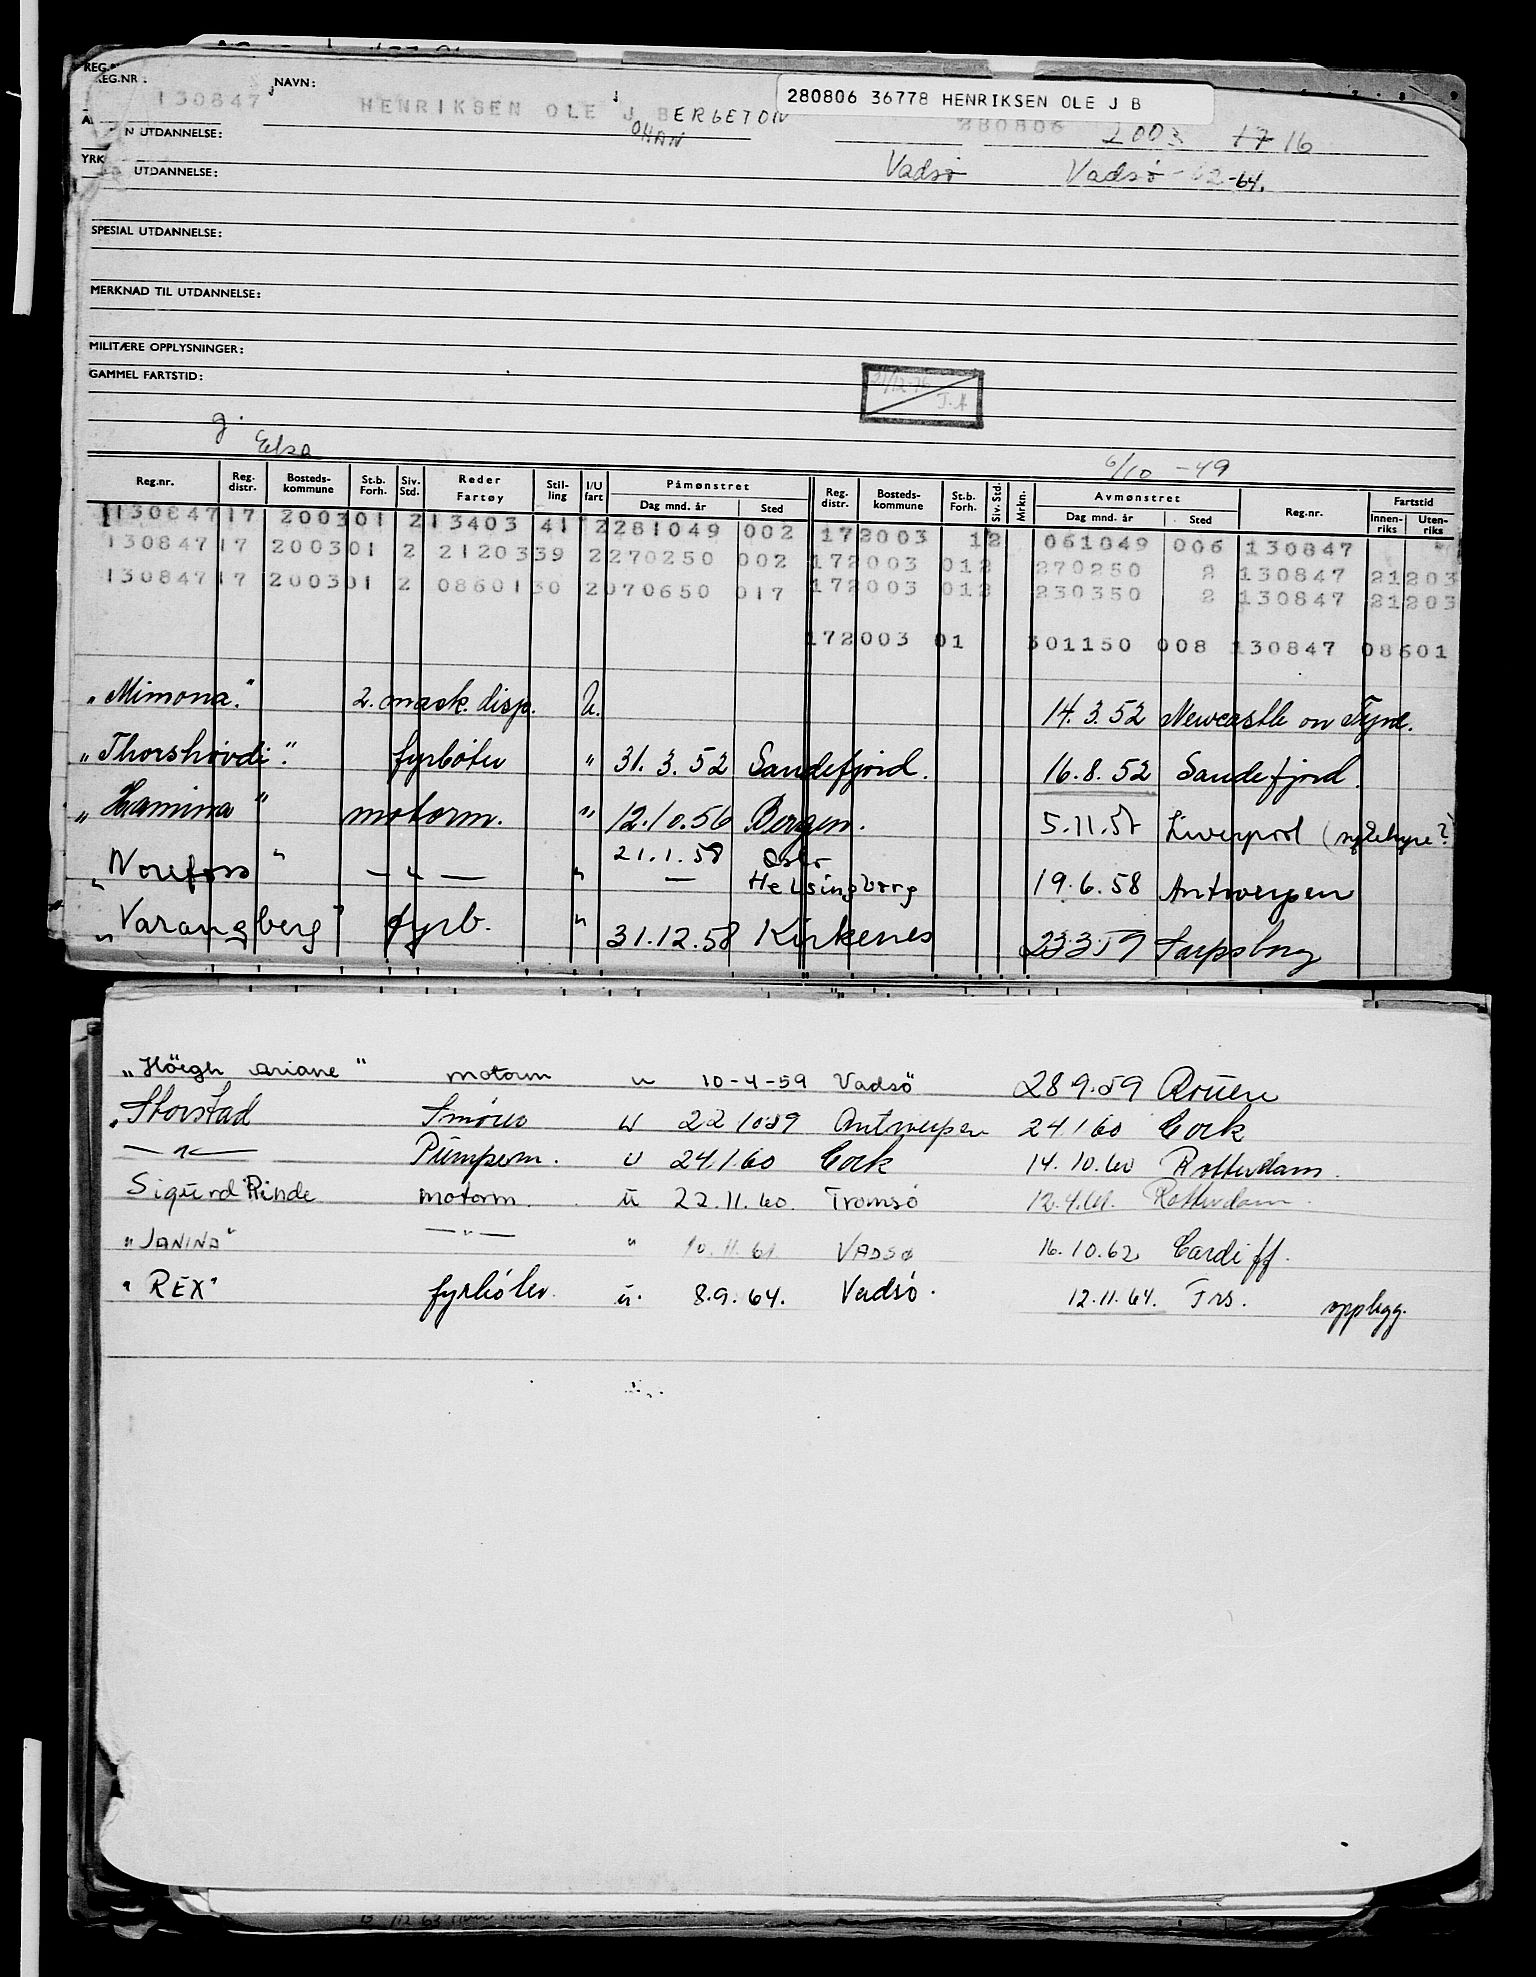 REG.NR: NAVN:
130847 HENRIKSEN OLE J BERGETON 280806 36778 HENRIKSEN OLE J B
OHAN 280806 2003 17 16
N UTDANNELSE:
YRK UTDANNELSE: Vadsø Vadsø - 62-64.
SPESIAL UTDANNELSE:
MERKNAD TIL UTDANNELSE:
MILITÆRE OPPLYSNINGER:
GAMMEL FARTSTID:
g. Elsa 6/10 -49
Reg.nr. Reg. distr. Bosteds-kommune St.b. Forh. Siv. Std. Reder Fartøy Stil-ling I/U fart Påmønstret Dag mnd. år Sted Reg. distr. Bosteds-kommune St.b. Forh. Siv. Std. Mrkn. Avmønstret Dag mnd. år Sted Reg.nr. Fartstid Innen-riks Uten-riks
130847 17 200301 2 13403 41 2281049 002 172003 12 061049 006 130847
130847 17 200301 2 2120339 2270250 002 172003 012 270250 2 130847 21203
130847 17 200301 2 0860130 2070650 017 172003 012 230350 2 130847 21203
172003 01 301150 008 130847 08601
"Mimona." 2. mask. disp. U. 14.3.52 Newcastle on Tyne.
"Thorshövdi". fyrböter " 31.3.52 Sandefjord. 16.8.52 Sandefjord.
"Hamina" motorm. " 12.10.56 Bergen. 5.11.57 Liverpool
"Norefoss" — " — " 21.1.58 Oslo
— Helsingborg 19.6.58 Antwerpen
"Varangberg" fyrb. " 31.12.58 Kirkenes 23.3.59 Sarpsborg
"Höegh Ariane" motorm u 10-4-59 Vadsö 28.9.59 Rouen
"Storstad Smörer u 22.10.59 Antwerpen 24.1.60 Cork
— " — Pumpem. u 24.1.60 Cork 14.10.60 Rotterdam.
Sigurd Rinde motorm. u 22.11.60. Tromsö 12.4.61. Rotterdam.
"JANINA" — " — " 10.11.61 VADSØ 16.10.62 Cardiff.
"REX" fyrböter. u. 8.9.64. Vadsö. 12.11.64. Trs. opplegg.